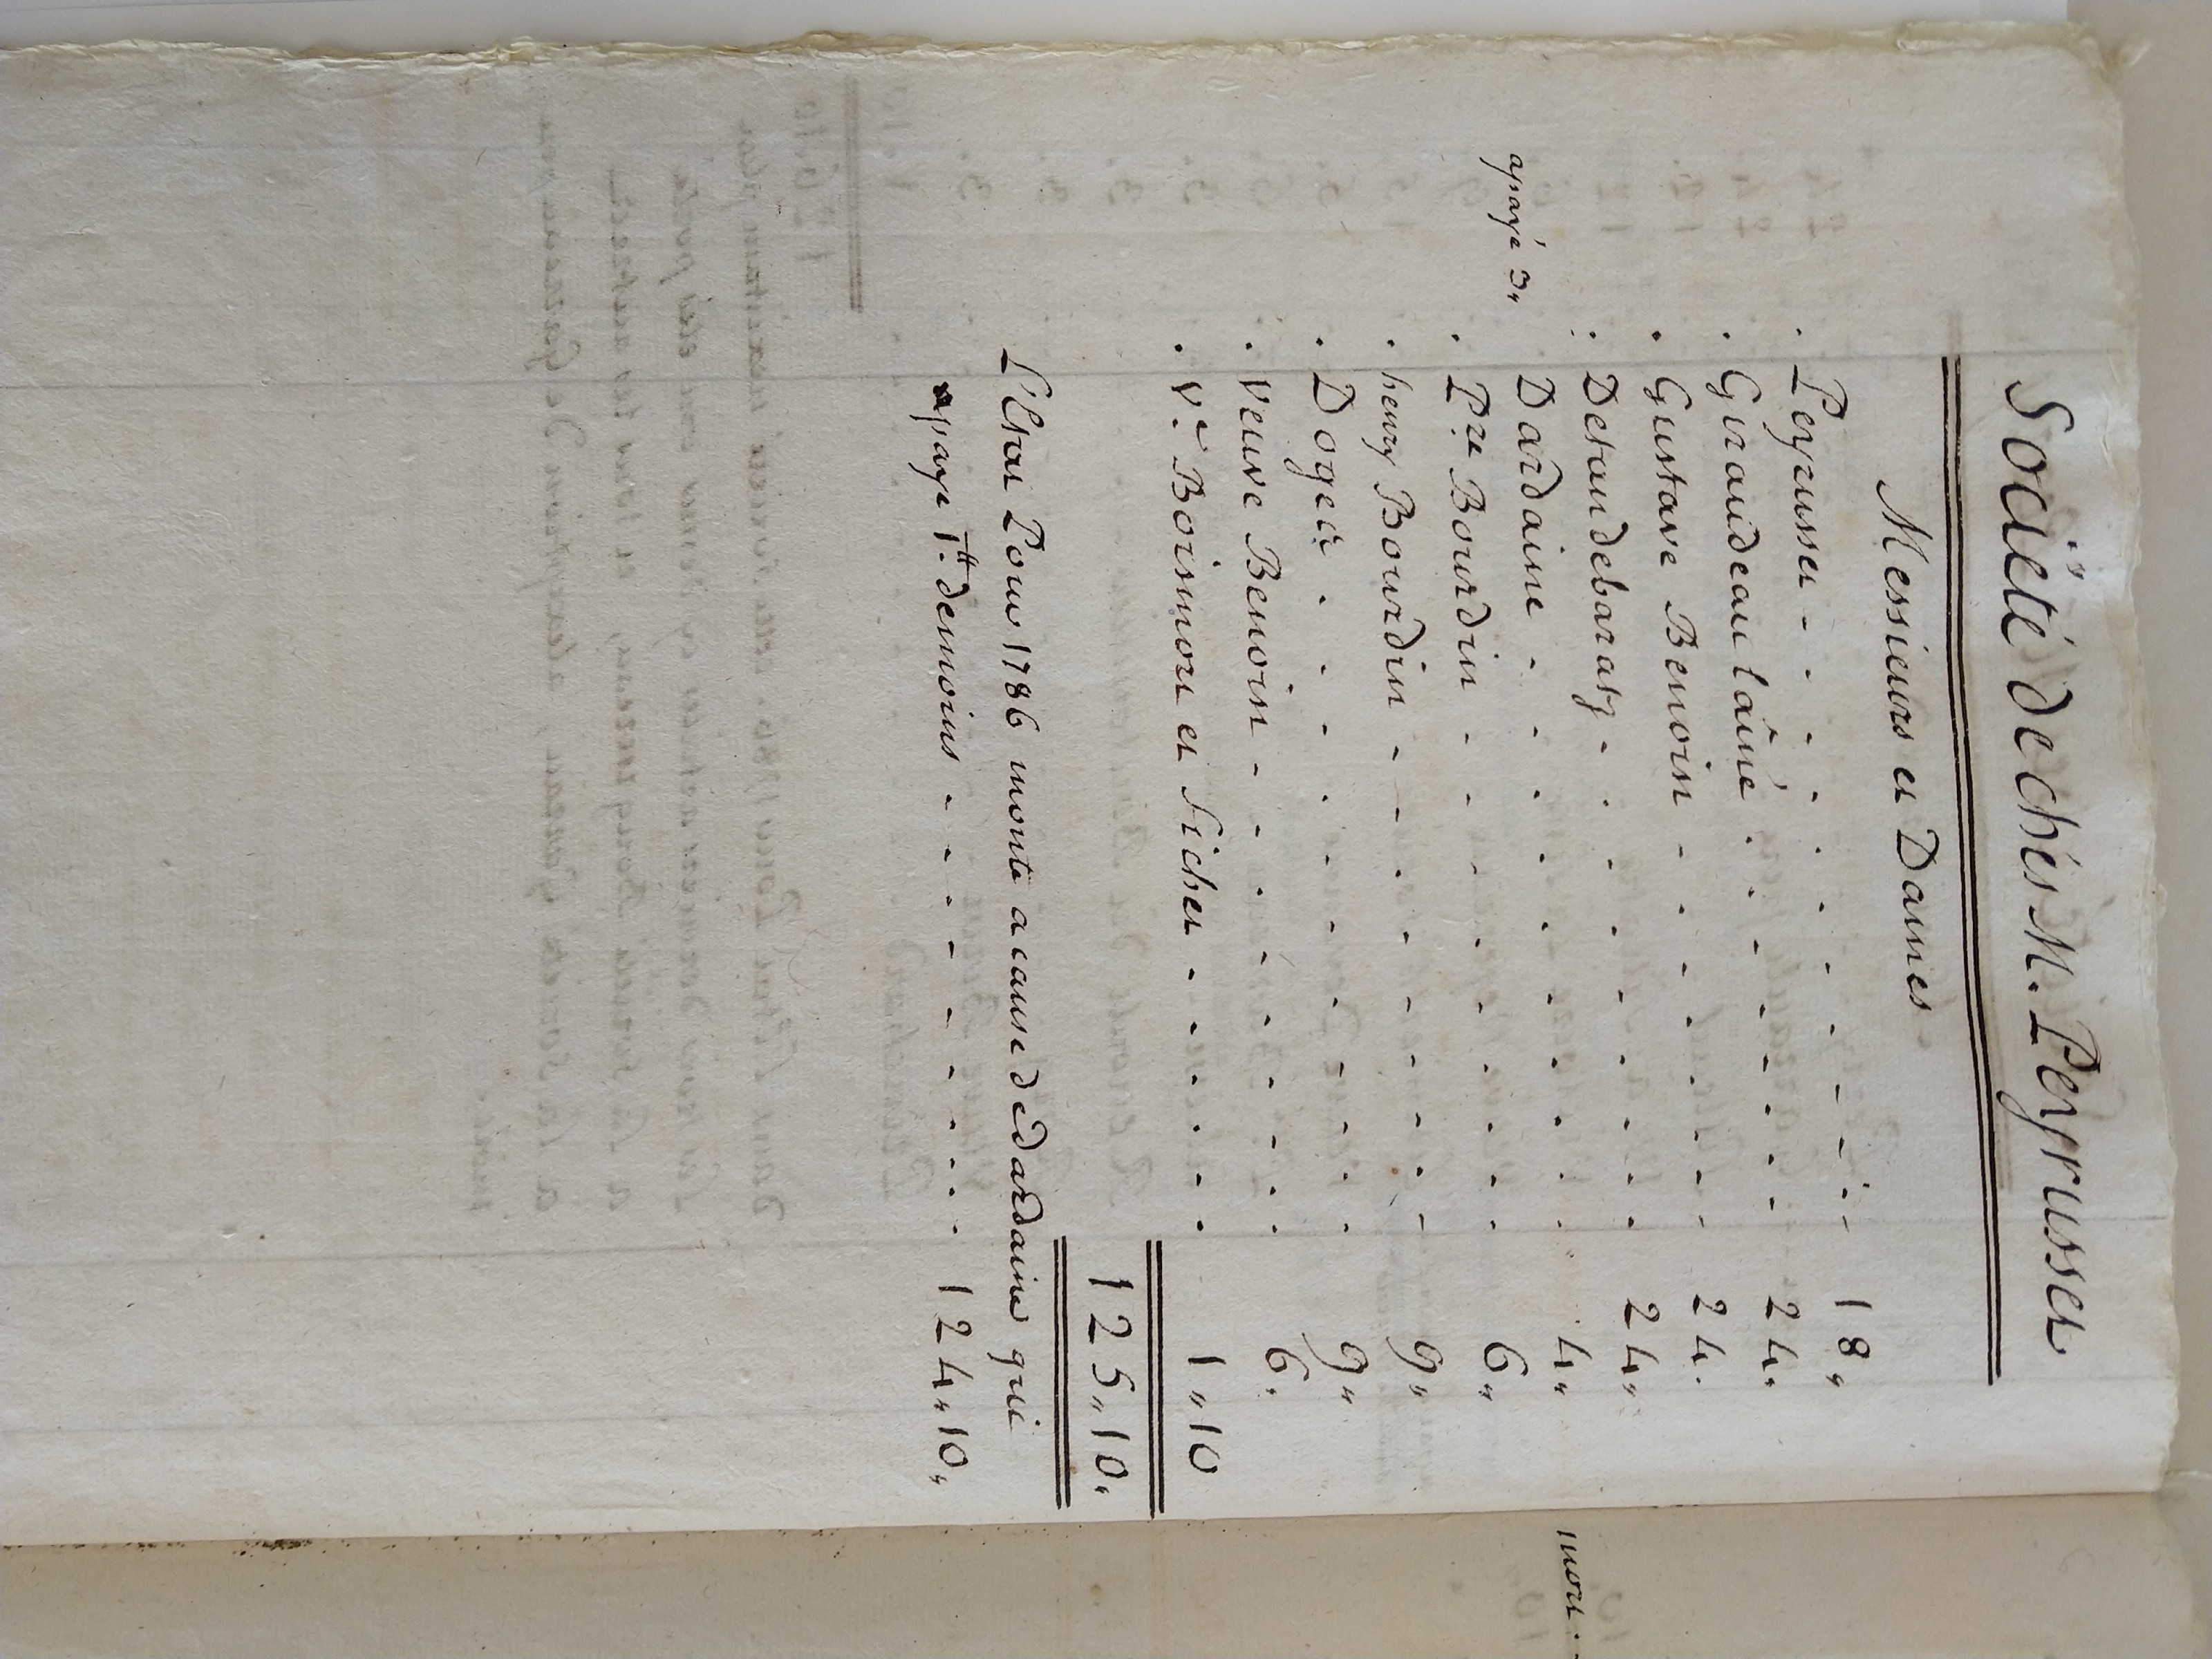 Société de chés M. Peyrusset
Messieurs et Dames
. Peyrusset - - - - - - - - - - 18 "
. Giraudeau l'aîné - - - - - - - 24 "
. Gustave Benoist - - - - - - - 24 "
. Destandebaratz - - - - - - - 24 "
apayé 3 " Dardaine - - - - - - - - 4 "
. Pre Bourdin - - - - - - - - 6 "
. henry Bourdin - - - - - - - - 9 "
. Doget - - - - - - - - - 9 "
. Veuve Benoist - - - - - - - - 6 "
. Ve. Boismont et Sicher - - - - - 1 " 10
125 " 10 "
L'Etat Pour 1786 monte a cause de dardaine qui
apayé 1# demoins - - - - - - - - 124 " 10 "
mort .